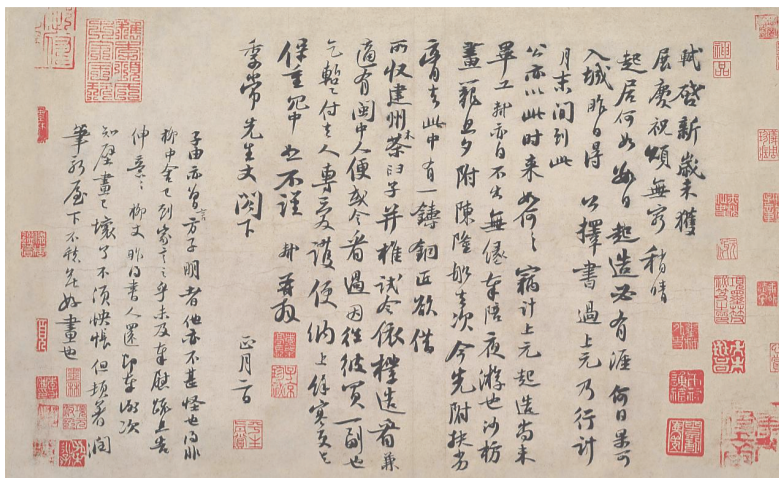 軾啓新歲未獲
展慶祝頌無窮稍晴
起居何如數日起造必有涯何日果可
入城昨日得公擇書過上元乃行計
月末間到此
公亦以此時來如何々竊計上元起造尚未
畢工軾亦自不出無緣奉陪夜游也沙枋
畫籠旦夕附陳隆船去次今先附扶劣
膏去此中有一鑄銅匠欲借
所收建州木茶臼子并椎試令依樣造看兼
適有閩中人便或令看過因往彼買一副也
乞暫付去人專愛護便納上餘寒更乞
保重冗中恕不謹 軾再拜
季常先生丈閣下
正月二日
子由亦曾言方子明者他亦不甚怪也得非
柳中舍已到家言之乎未及奉慰疏且告
伸意々柳丈昨得書人還即奉謝次
知壁畫已壞了不須怏悵但頓著潤
筆新屋下不愁無好畫也
神品